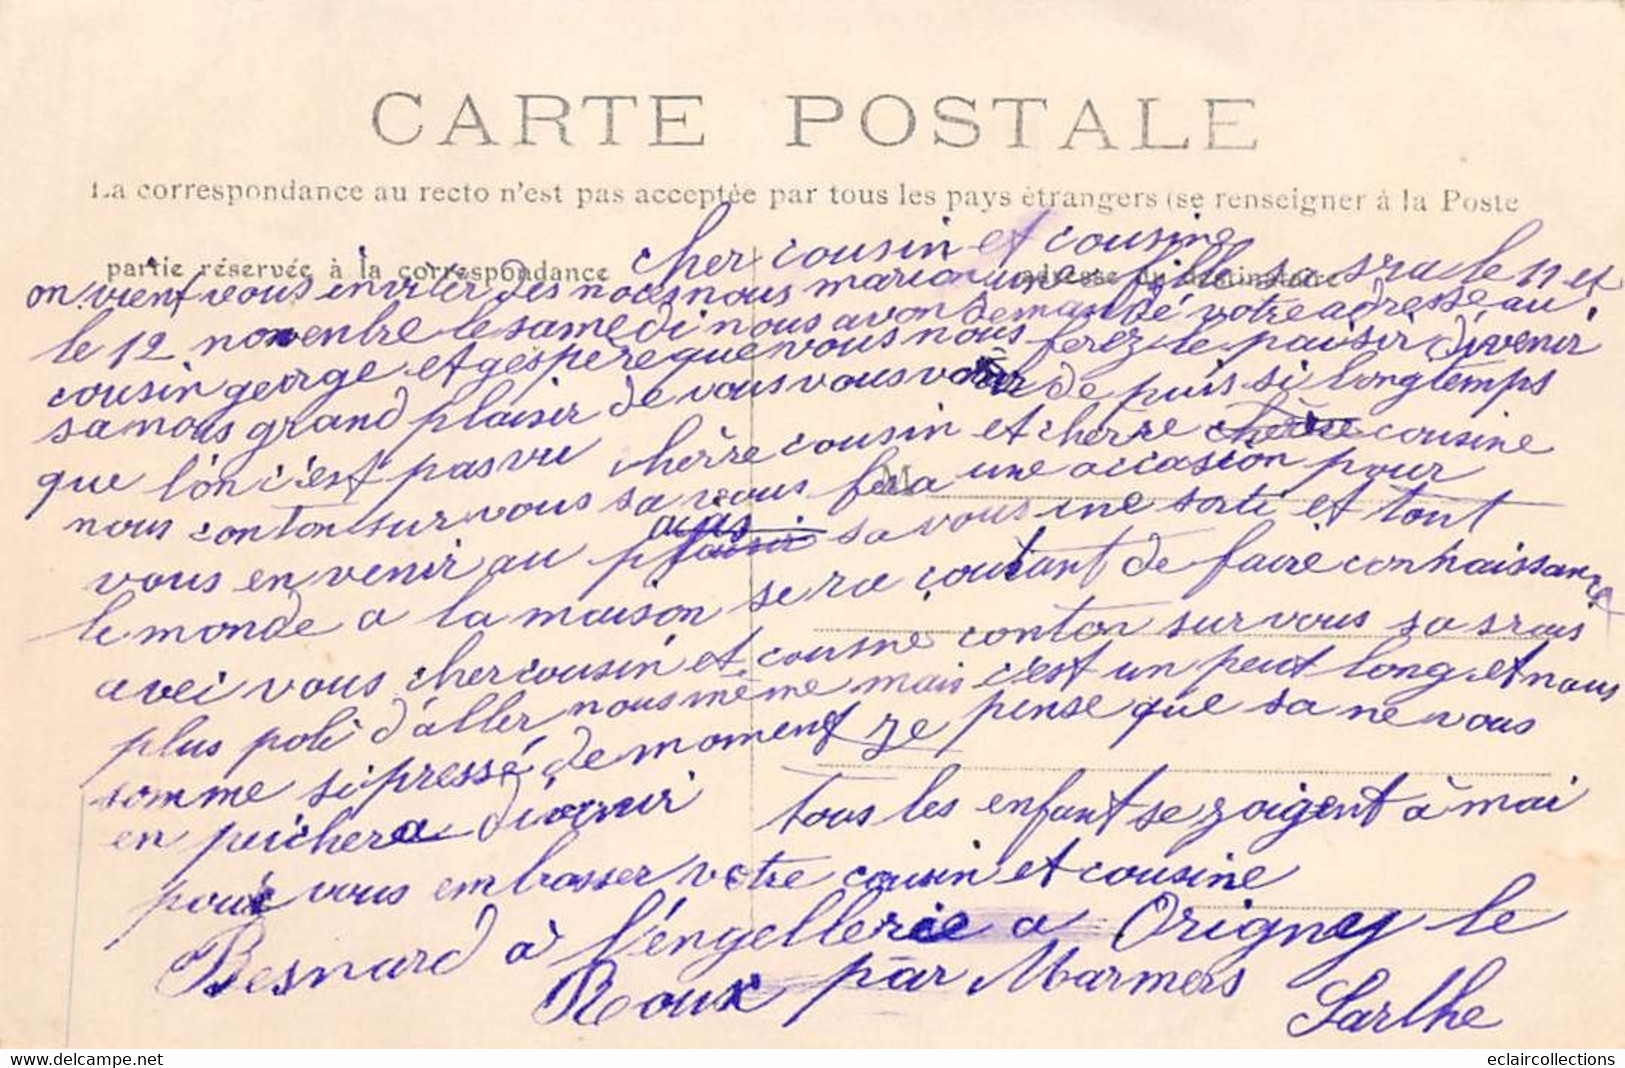 CARTE POSTALE
La correspondance au recto n'est pas acceptée par tous les pays étrangers (se renseigner à la Poste
partie réservée à la correspondance
adresse du destinataire
cher cousin et cousine
on vient vous inviter des noces nous marion une fille sa sra le 11 et
le 12 novenbre le samedi nous avon demandé votre adresse au
cousin george et gespere que vous nous ferez le paisir d'ivenir
sa nous grand plaisir de vous vous voir de puis si longtemps
que l'on c'est pas vu chèrre cousin et cherre chère cousine
nous conton sur vous sa vous fera une occasion pour
vous en venir au pais plaisir sa vous une sorti et tout
le monde a la maison sera coutant de faire connaissance
avec vous cher cousin et cousine conton sur vous sa srais
plus poli d'aller nous même mais c'est un peut long et nous
somme si pressé de moment ze pense que sa ne vous
en peichera d'ivenir tous les enfant se zoigent à moi
pour vous embrasser votre cousin et cousine
Besnard à l'engellerie a Origney le
Roux par Marmers Sarthe
M
eclaircollections